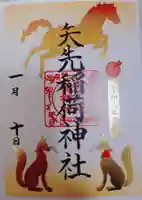 矢先稲荷神社
一月
十日